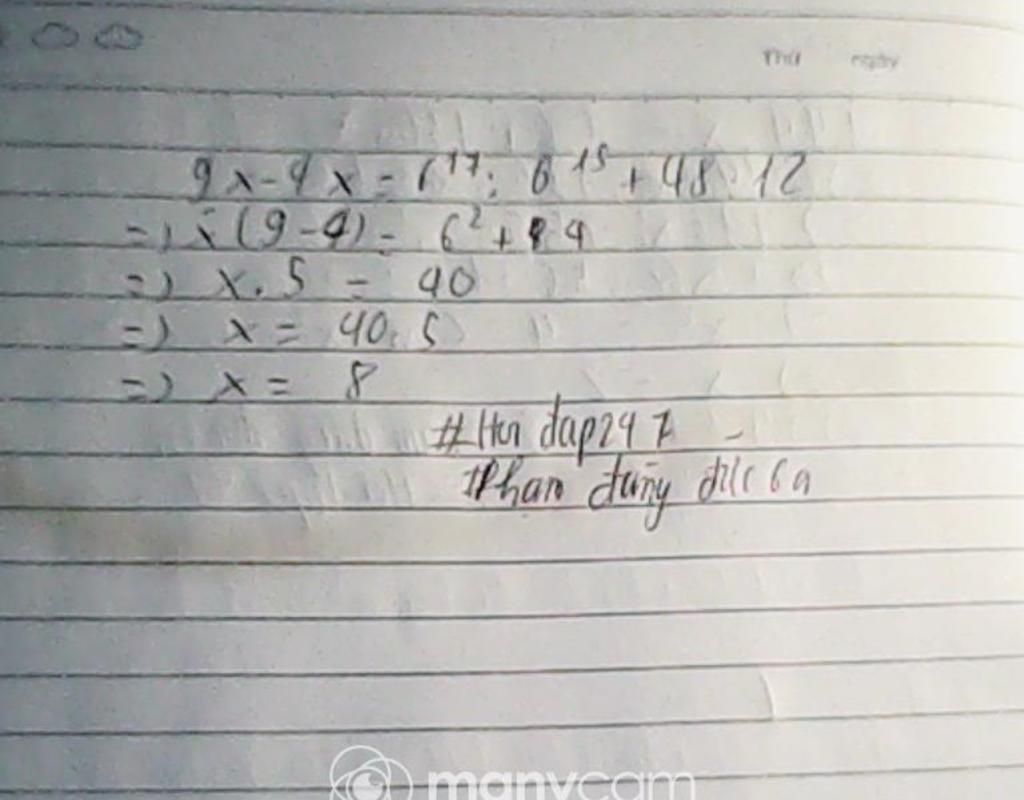 Thứ ngày
9x - 4x = 6¹⁷ : 6¹⁵ + 48 : 12
=) x(9-4) = 6² + 4
=) x . 5 = 40
=) x = 40 : 5
=) x = 8
#Hoi dap 24 7
#Phan đăng đức 6a
manycam